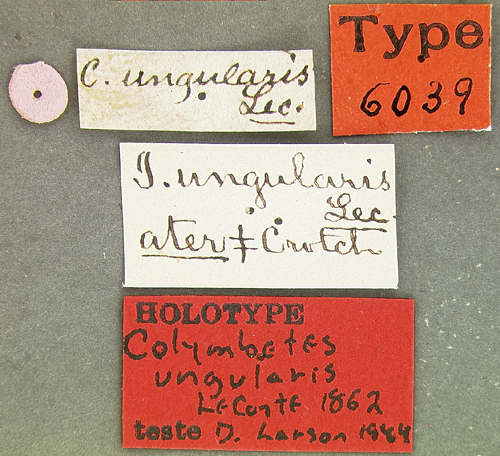 C. ungularis
Lec.
Type
6039
I. ungularis
Lec.
ater ‡ Crotch
HOLOTYPE
Colymbetes
ungularis
LeConte 1862
teste D. Larson